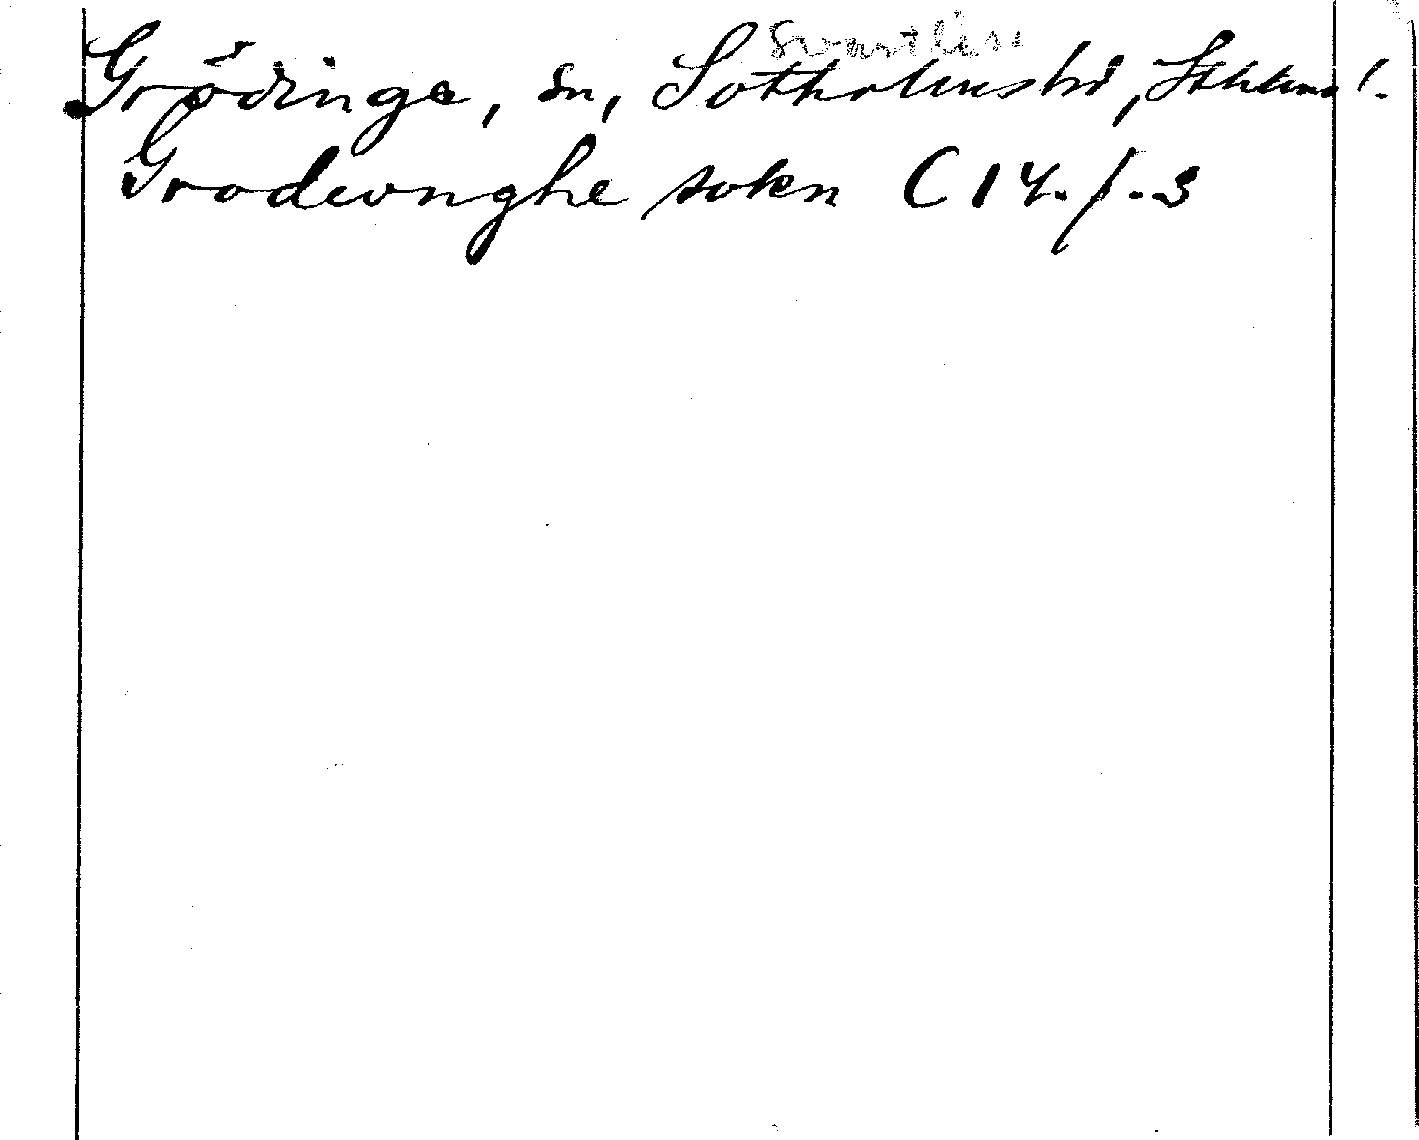 Svartlösa
Grödinge, sn, Sotholms hd, Sthlms l.
Grodeonghe sokn C 14. f. 3